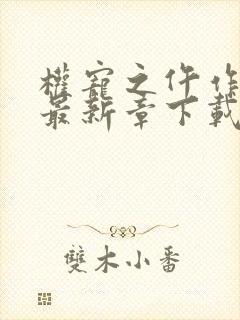 權寵之仵作
最新章下載
雙木小番